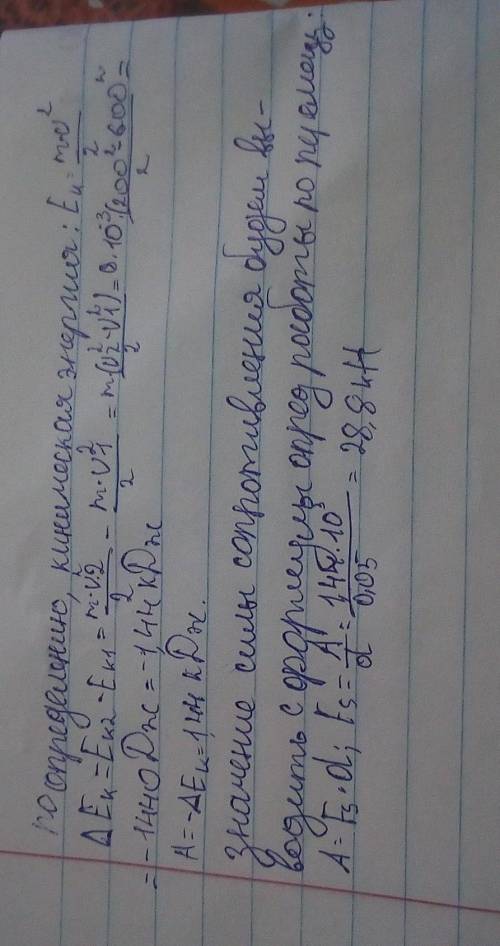 по определению, кинетическая энергия: Eк = m·υ²/2
ΔEк = Eк2 - Eк1 = m·υ2²/2 - m·υ1²/2 = m·(υ2² - υ1²)/2 = 9·10⁻³·(200² - 600²)/2 =
= -1440 Дж = -1,44 кДж
A = -ΔEк = 1,44 кДж.
Значение силы сопротивления будем вы-
водить с формулы опред работы по
A = Fs·d; Fs = A/d = 1,44·10³/0,05 = 28,8 кН